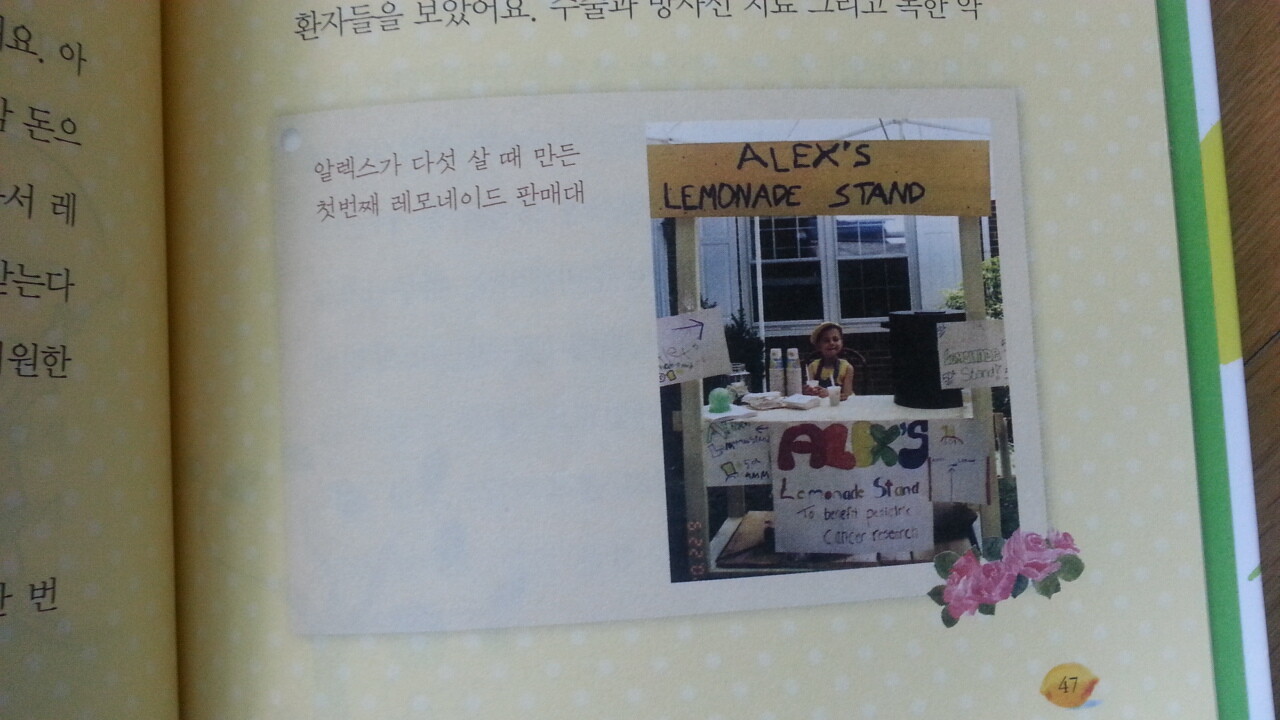 요. 아
돈으
서 레
받는다
원한
번
환자들을 보았어요. 수술과 방사선 치료 그리고 독한 약
알렉스가 다섯 살 때 만든
첫번째 레모네이드 판매대
ALEX'S
LEMONADE STAND
Stand
ALEX'S
Lemonade Stand
To benefit pediatric
Cancer research
47